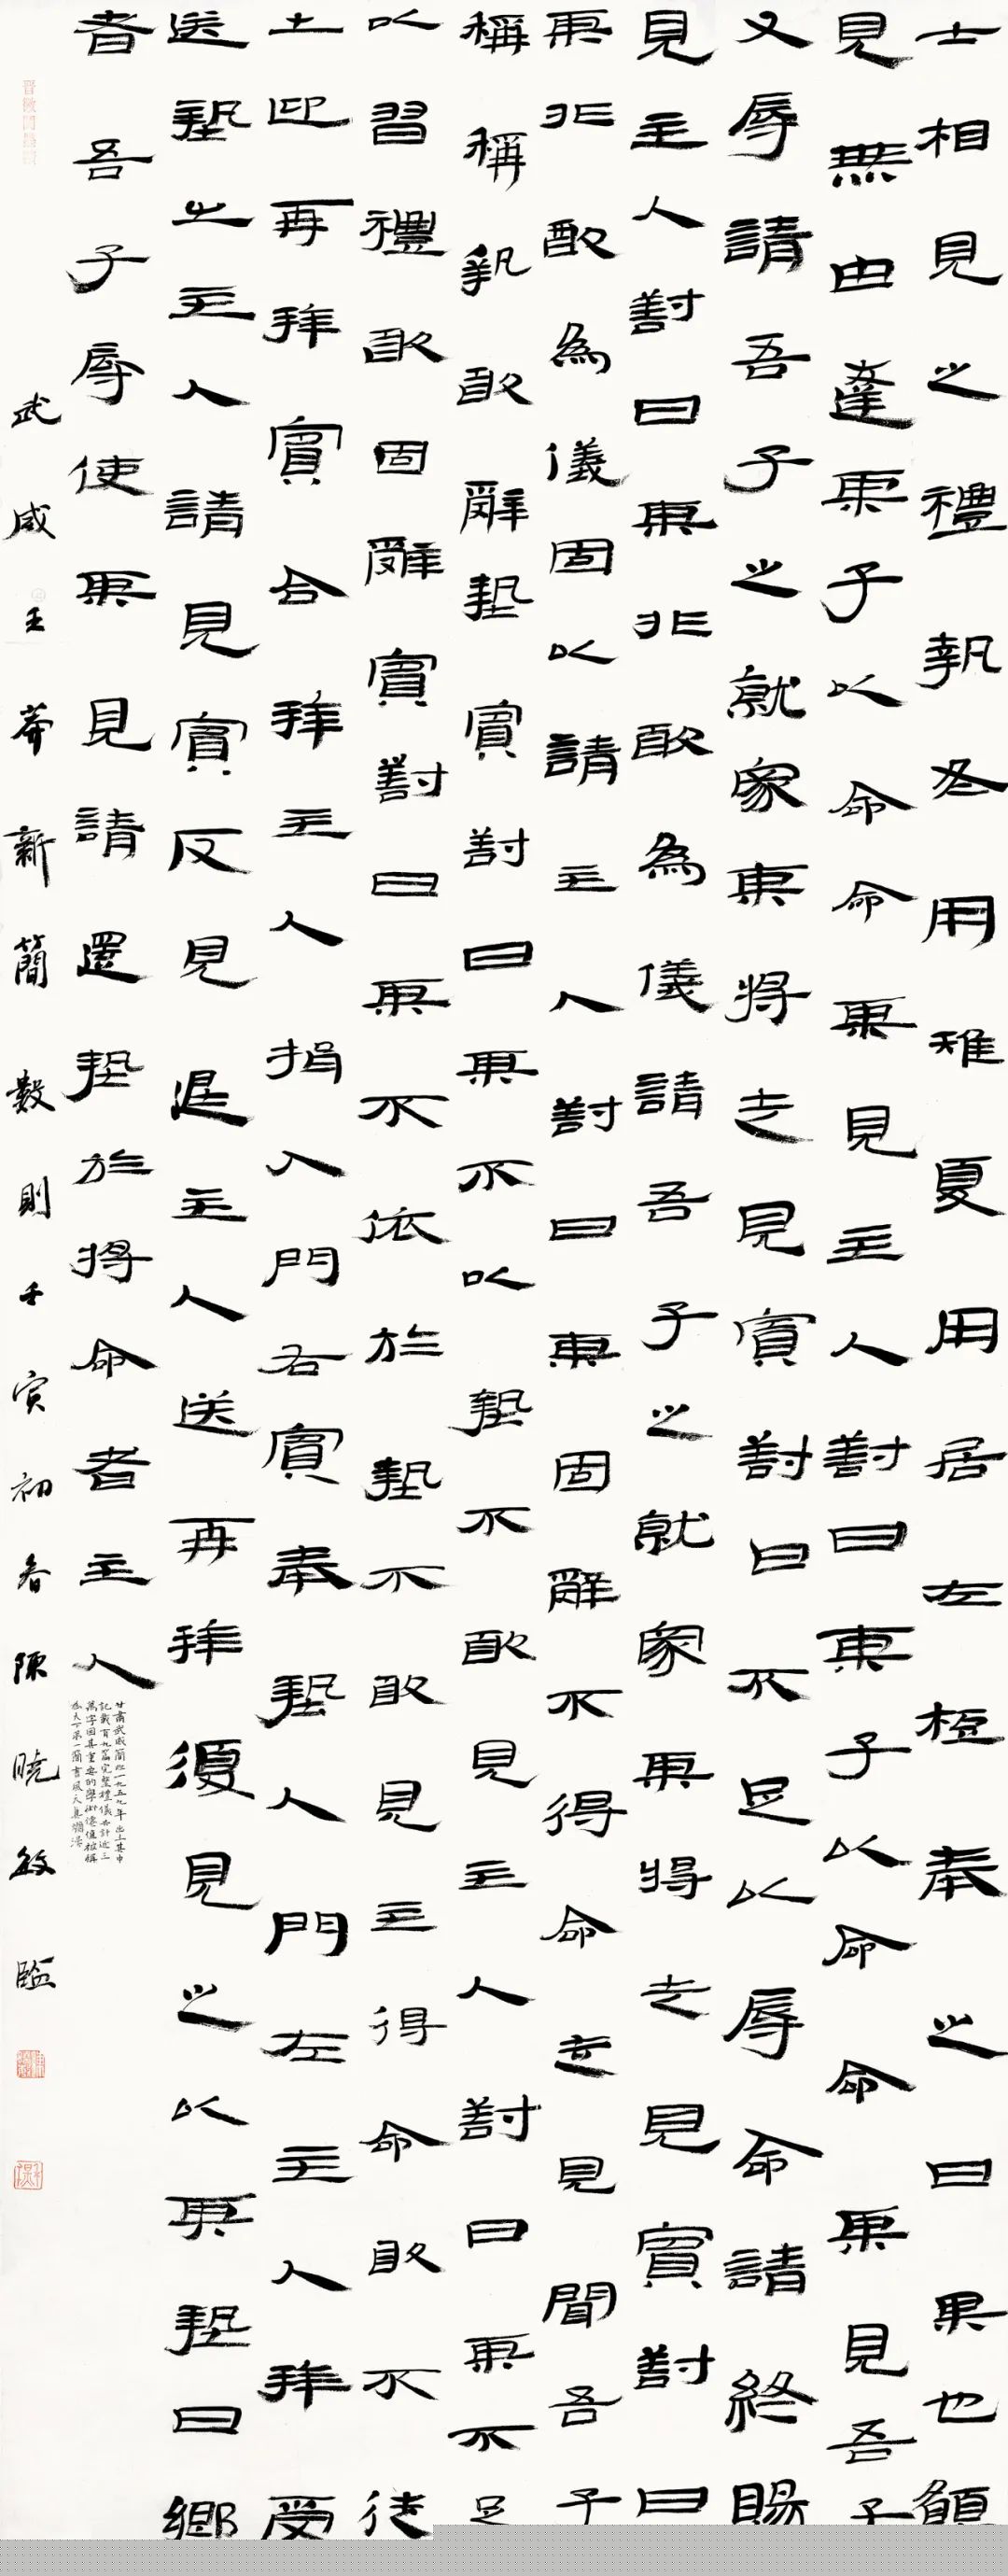 士相見之禮執冬用雉夏用居左梪奉之曰某也願
見無由達某子以命命某見主人對曰某子以命命某見吾子
又辱請吾子之就家某將走見賓對曰不足以辱命請終賜
見主人對曰某非敢為儀請吾子之就家某將走見賓對曰
某非敢為儀固以請主人對曰某固辭不得命走見聞吾子
稱稱執敢辭摯賓對曰某不以摯不敢見主人對曰某不足
以習禮敢固辭賓對曰某不依於摯不敢見主得命敢不從
土迎再拜賓合拜主人揖入門右賓奉摯入門左主人拜受
送摯之主人請見賓反見退主人送再拜須見之以其摯曰鄉
者吾子辱使某見請還摯於將命者主人
甘肅武威簡於一九五九年出土其中
記載百九篇完整禮儀共計近三
萬字因其重要的學術價值被稱
為天下第一簡書風天真爛漫
武威王莽新簡數則壬寅初春陳曉敏臨